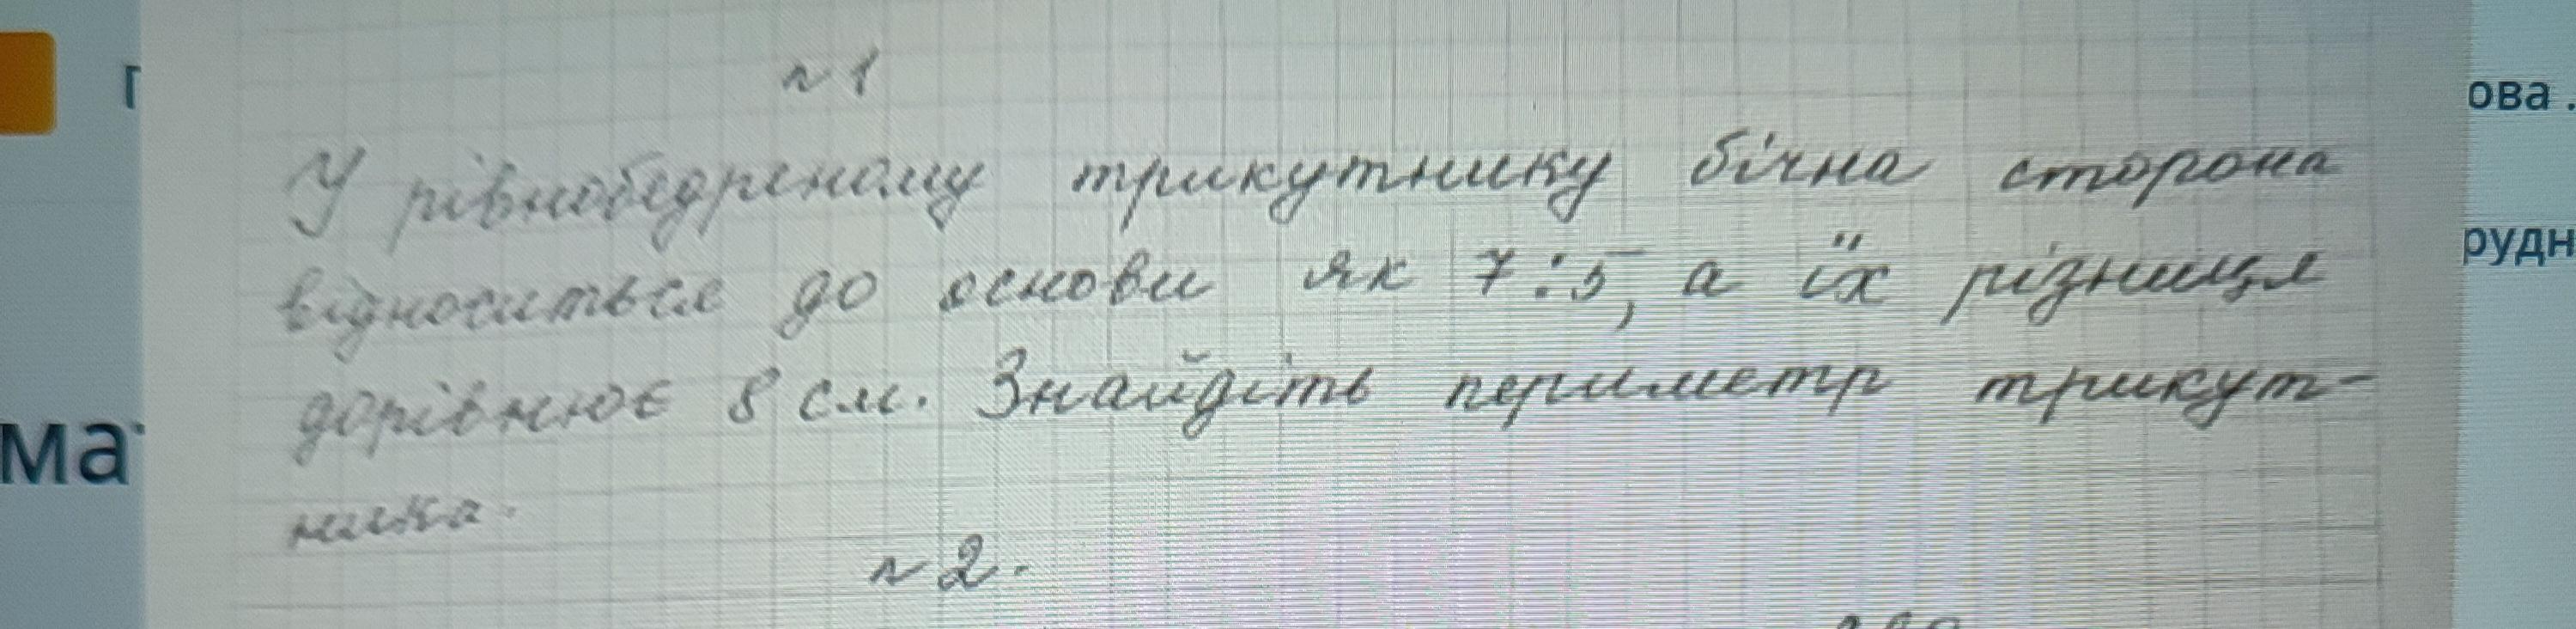 n 1
ова.
У рівнобедреному трикутнику бічна сторона
рудн
відноситься до основи як 7:5, а їх різниця
дорівнює 8 см. Знайдіть периметр трикут-
ма
ника.
n 2.